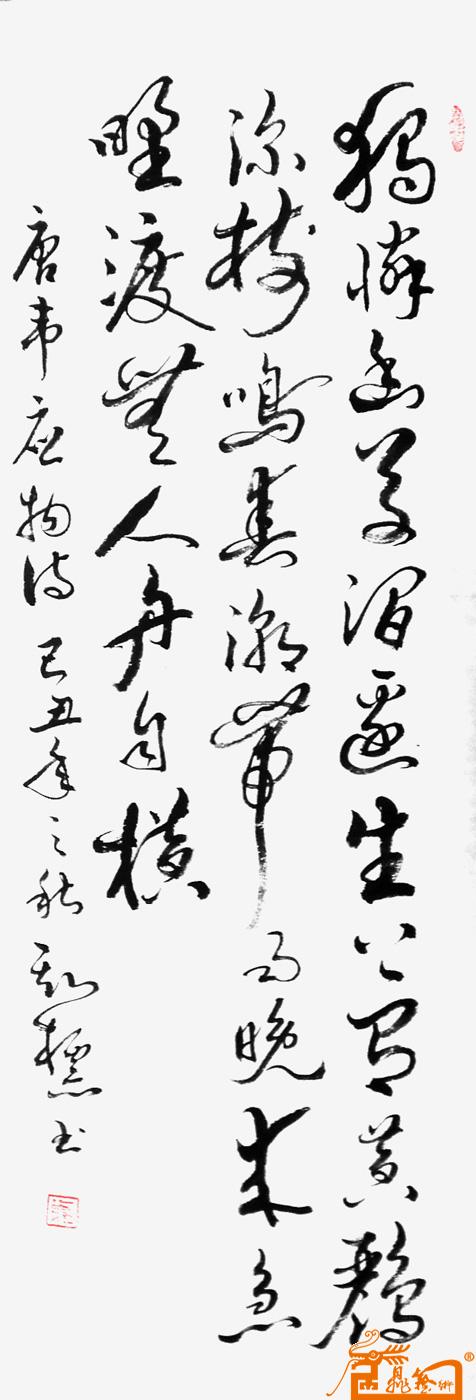 獨憐幽草澗邊生上有黃鸝
深樹鳴春潮帶雨晚來急
野渡無人舟自橫
唐韋應物詩 己丑年之秋 書